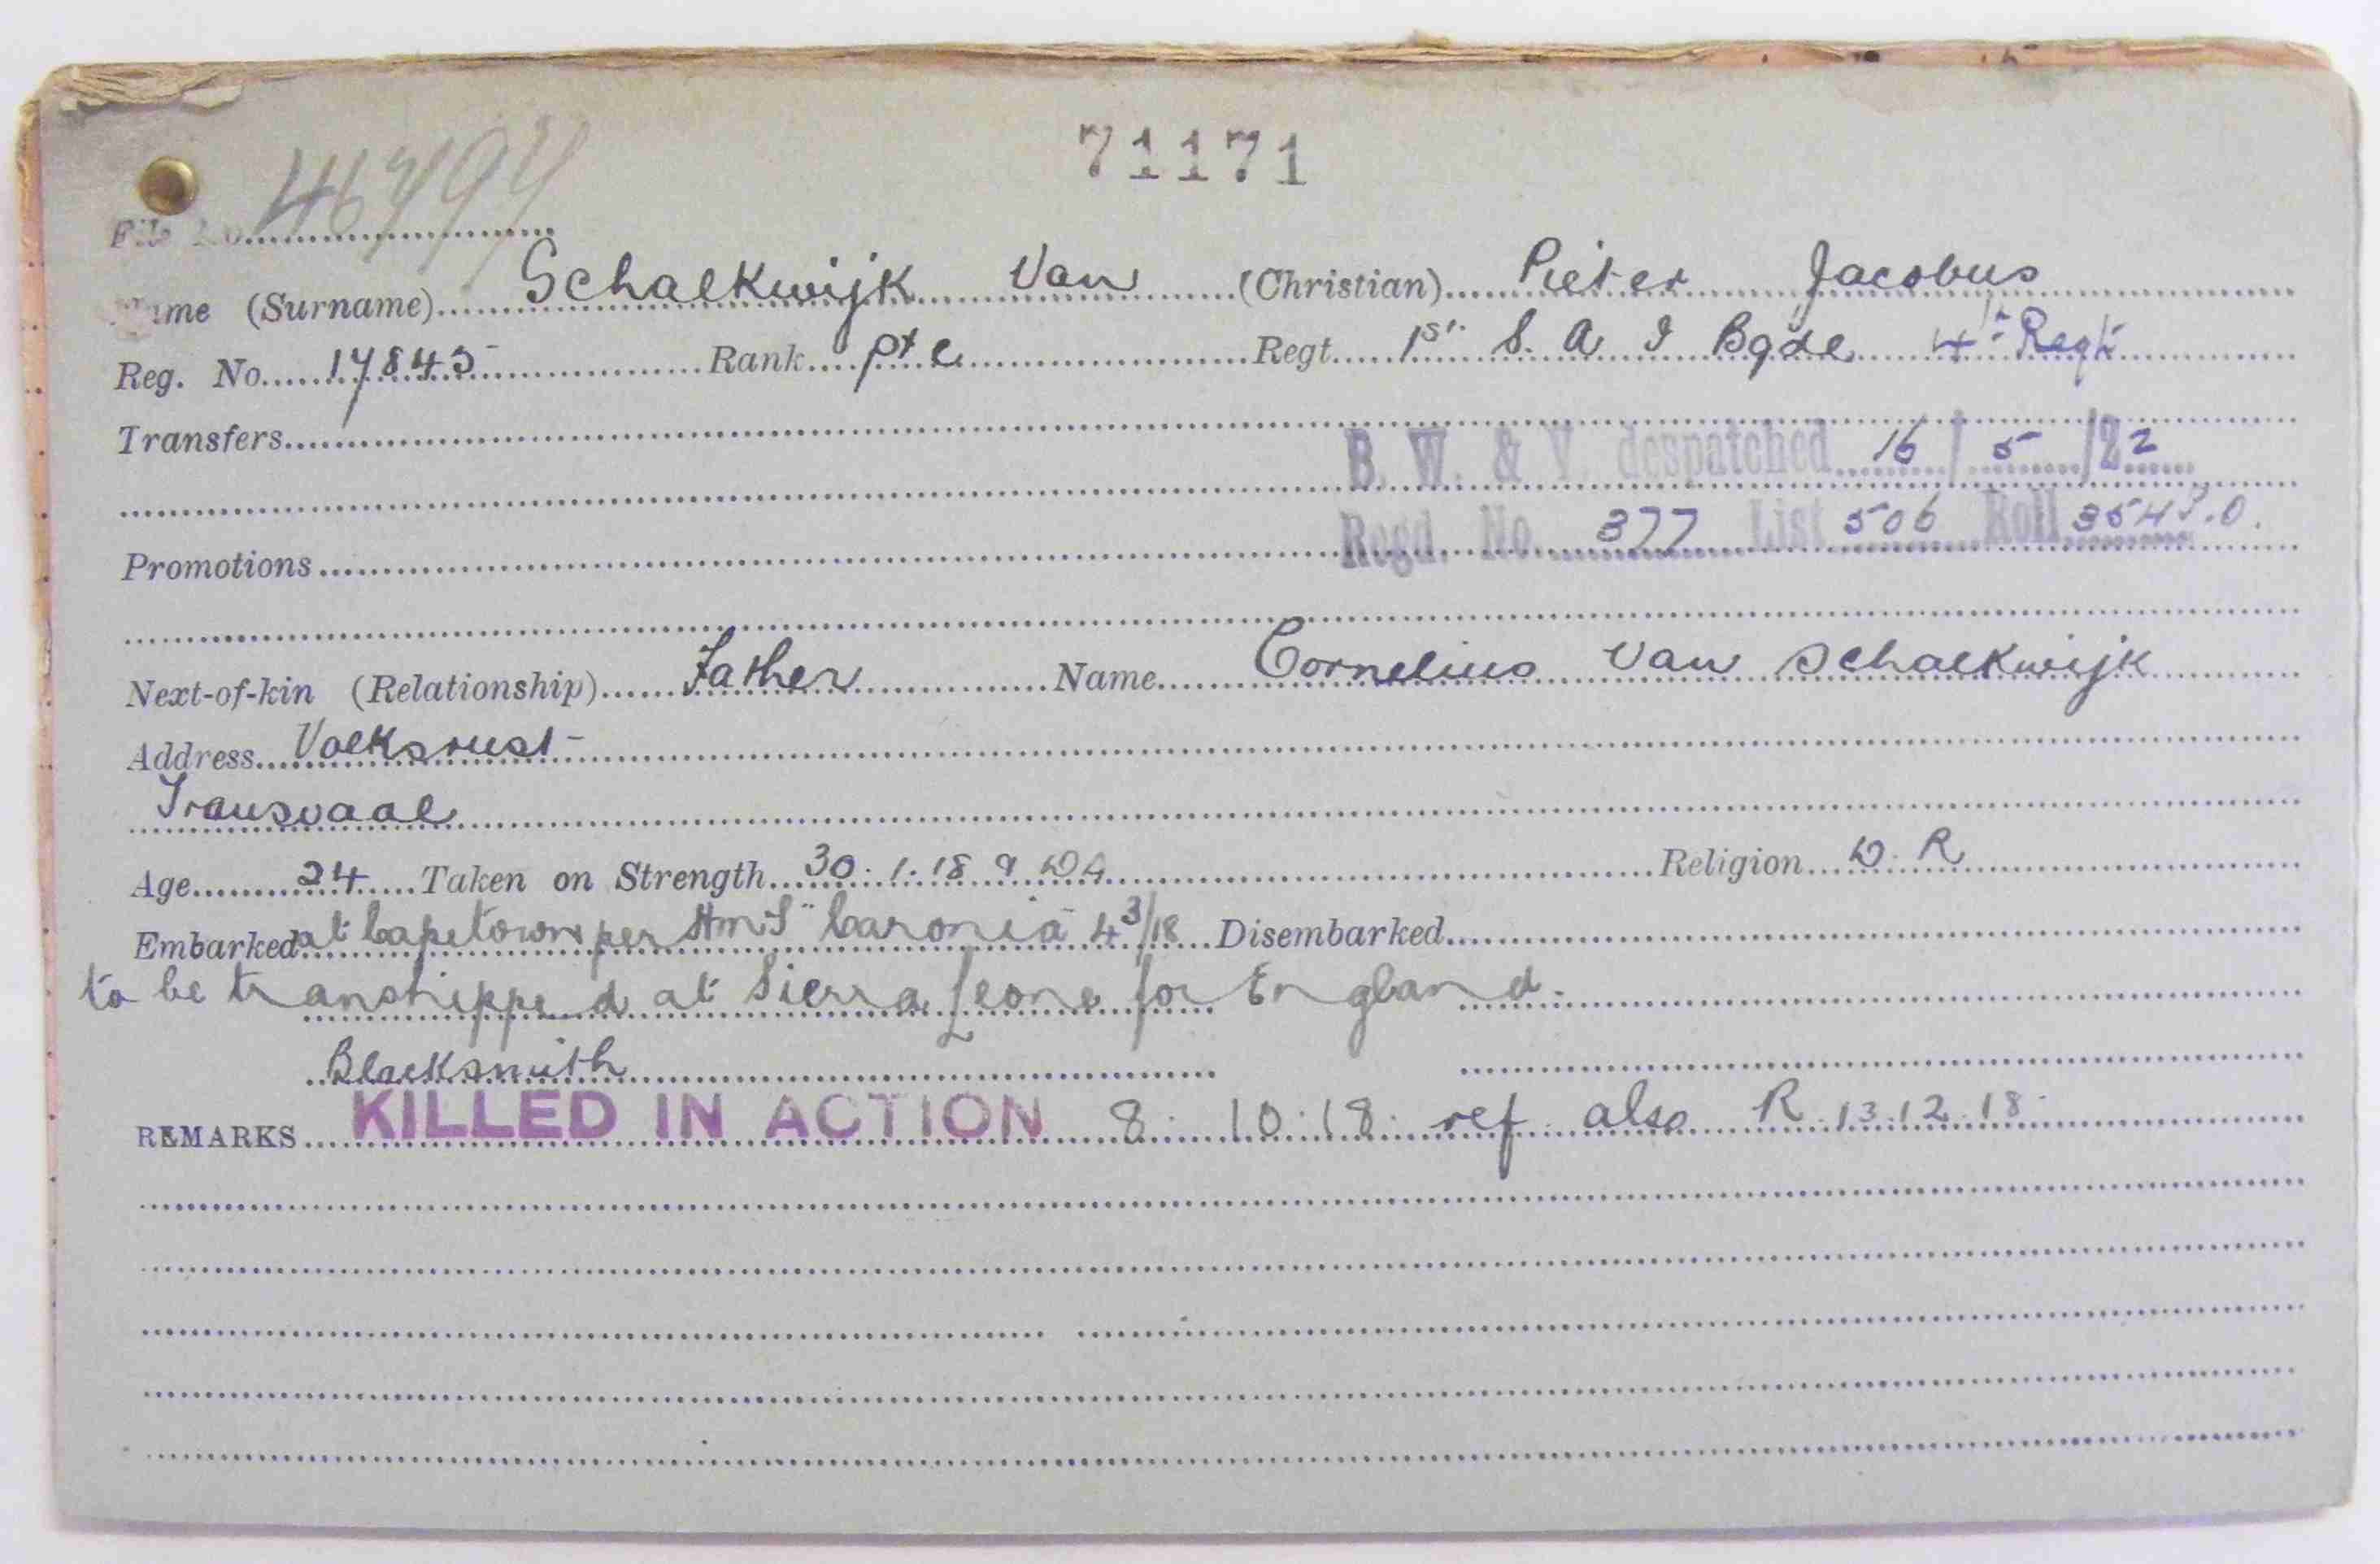 71171
File No. 46797
Name (Surname) Schalkwijk Van (Christian) Pieter Jacobus
Reg. No. 17845 Rank pte Regt. 1st S. A I Bgde 4th Regt
Transfers
B. W. & V. despatched 16/5/22
Regd. No. 377 List 506 Roll 354
Promotions
Next-of-kin (Relationship) Father Name Cornelius Van Schalkwijk
Address Volksrust
Transvaal
Age 24 Taken on Strength 30.1.18 Religion D. R
Embarked at Capetown per HMS "Caronia" 4 3/18 Disembarked
to be transhipped at Sierra Leone for England.
Blacksmith
REMARKS KILLED IN ACTION 8.10.18. ref also R 13.12.18.